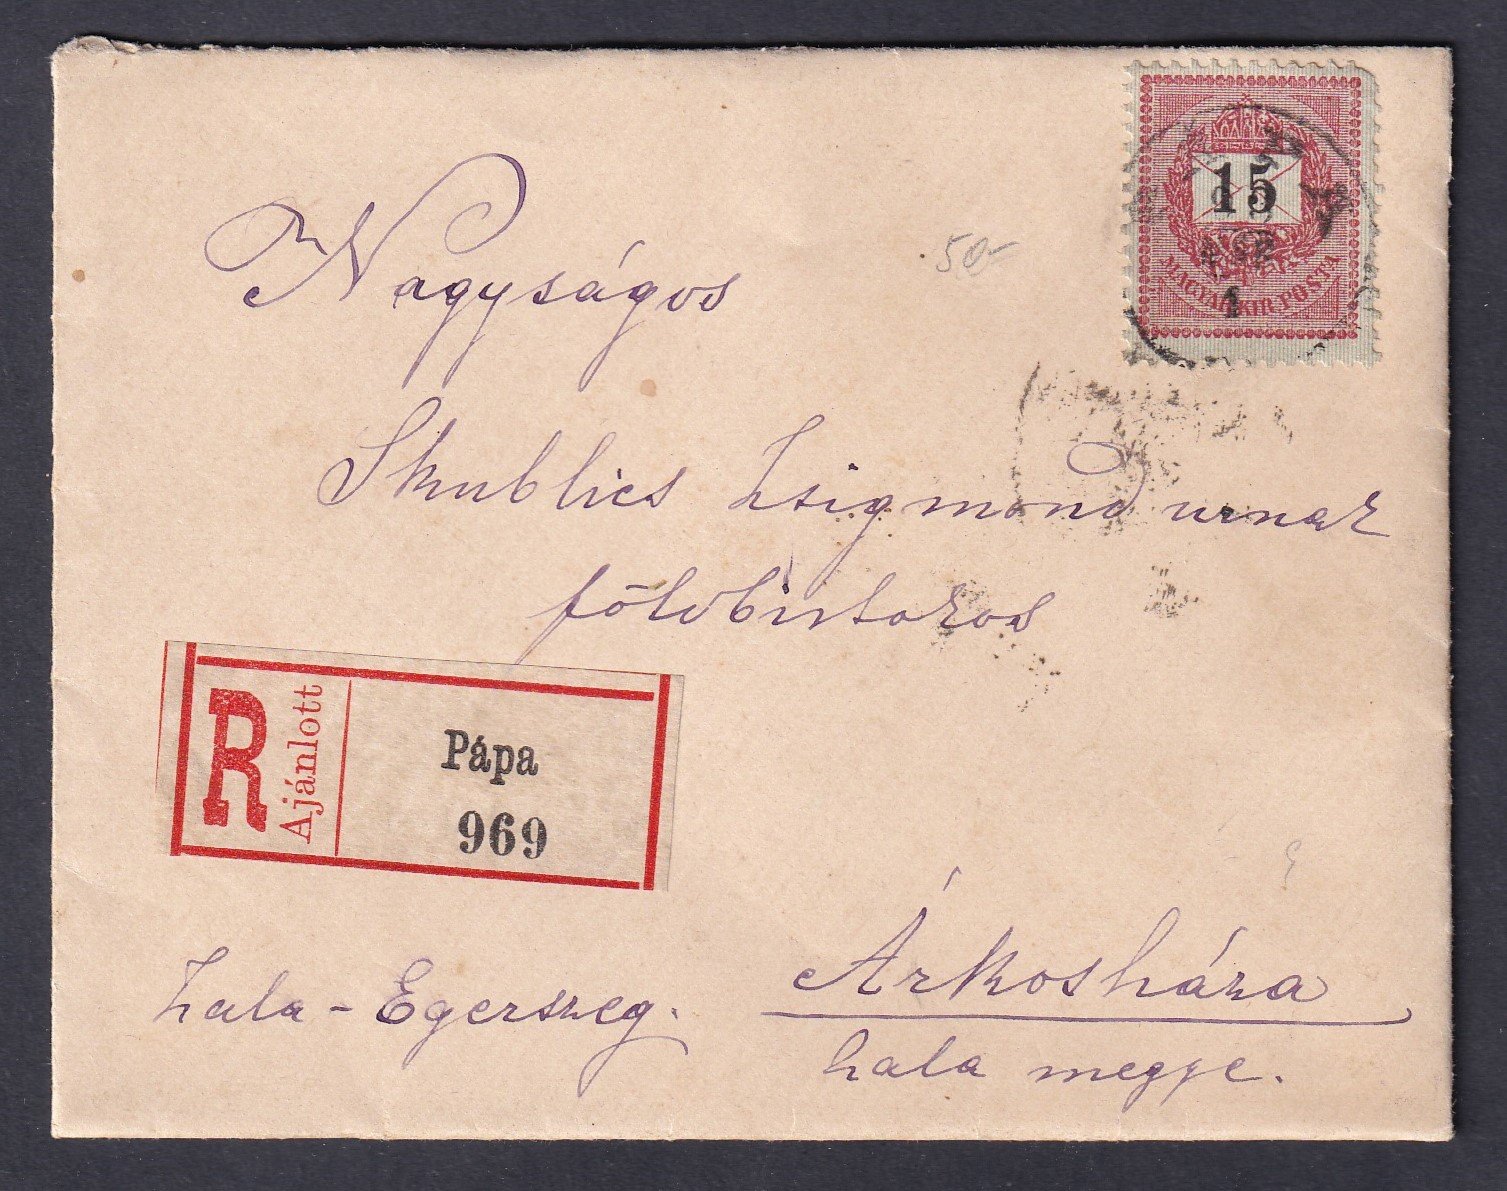 15
MAGYAR KIR. POSTA
1
50-
Nagyságos
Skublics Zsigmond urnak
földbirtokos
R Ajánlott
Pápa
969
Árkosháza
Zala-Egerszeg.
Zala megye.